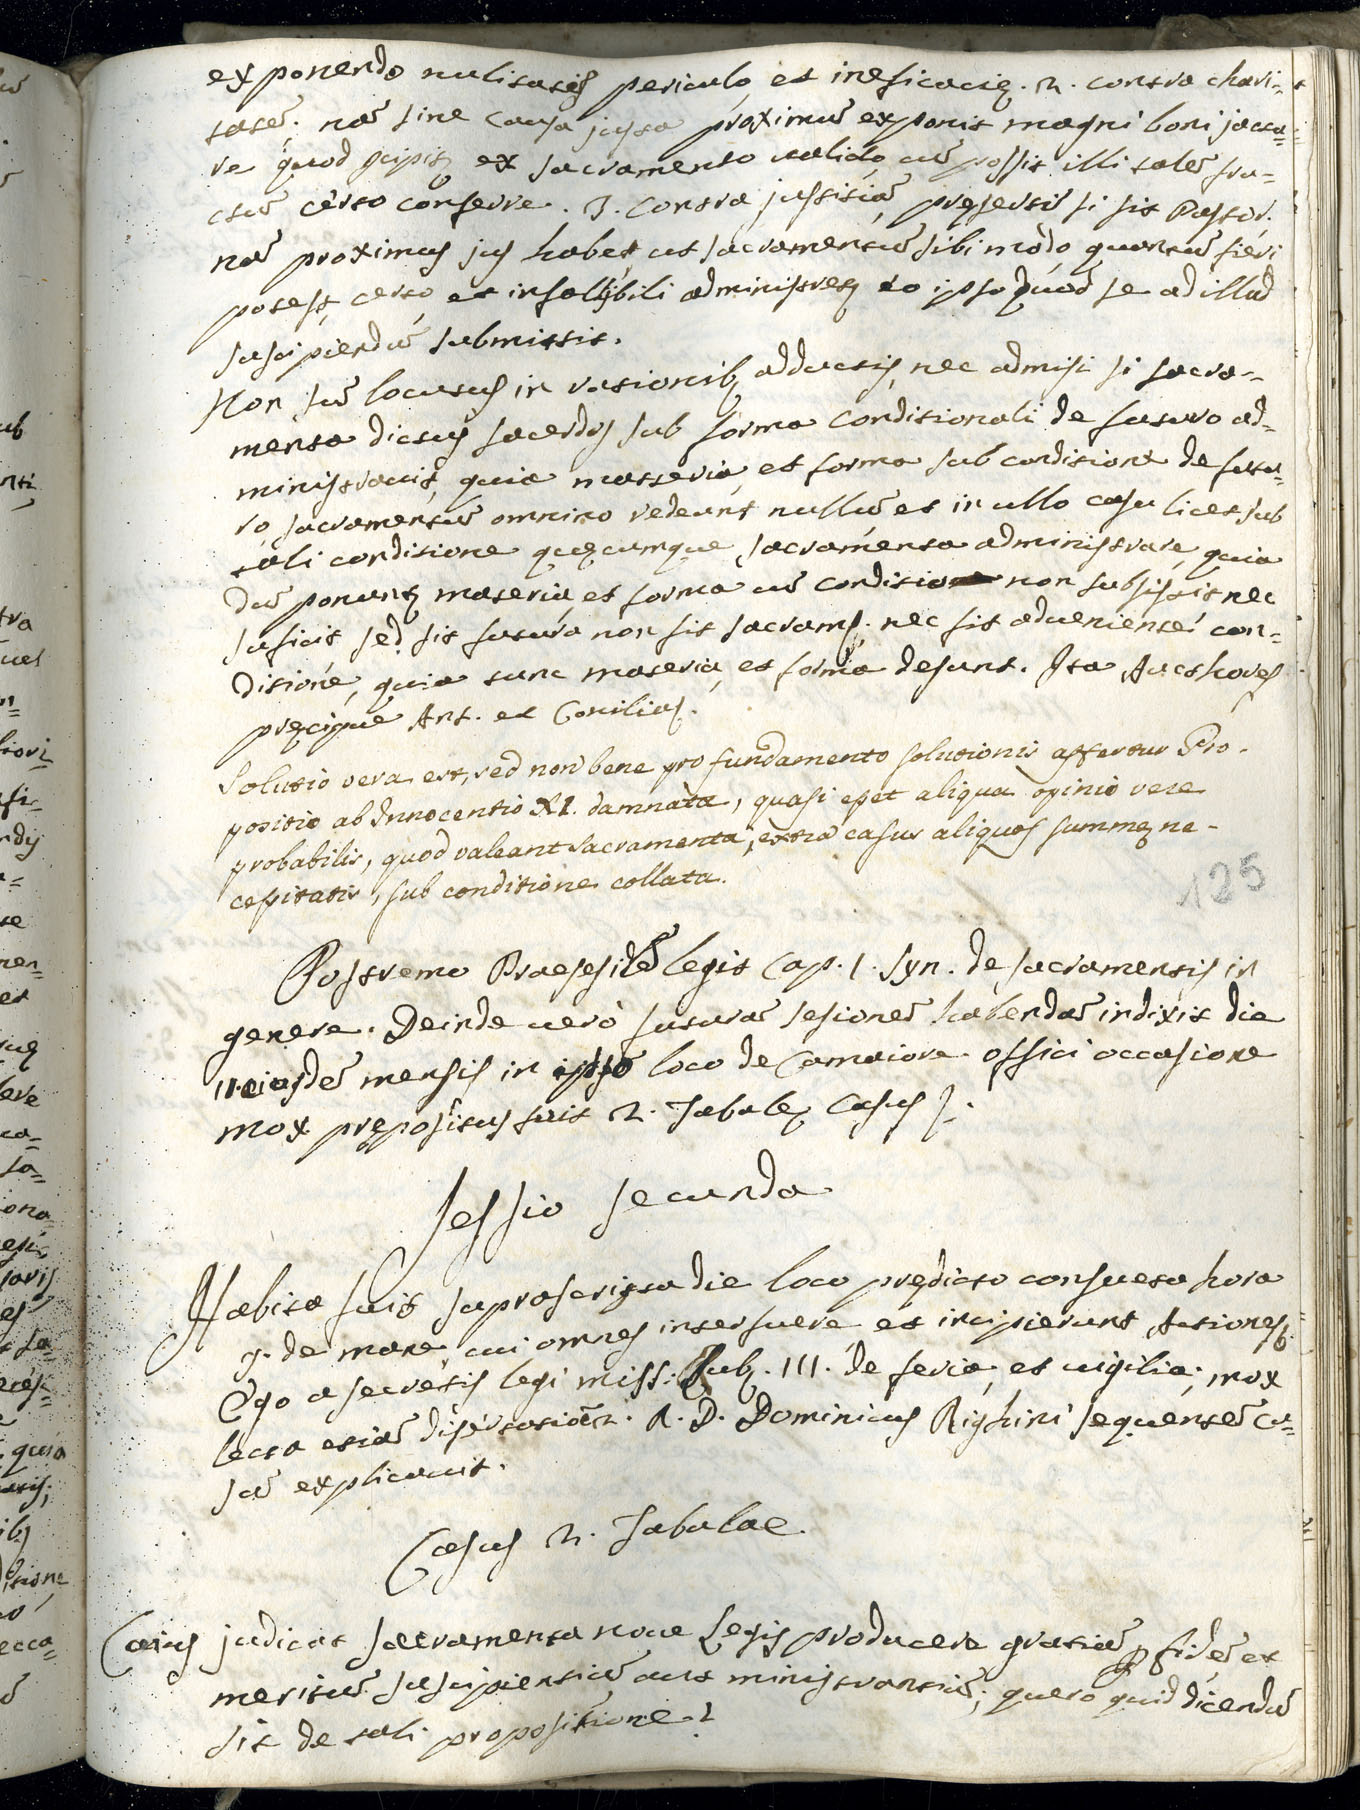 exponendo nulitatis periculo, et ineficacię. 2. contra chari-
tatē. nā sine causa justa proximū exponit magni boni jactu-
re quod pcipit ex sacramento valido, cū possit illi talē fru-
ctū certo conferre. 3. contra justitiā pręsertī si sit Pastor.
nā proximus jus habet ut sacramentū sibi modo quantū fieri
potest, certo, et infallibili administret, eo ipso quod se ad illud
suscipiendū submittit.
Non sū locutus in rationib, adductis, nec admisi si sacra-
menta dictus sacerdos sub forma conditionali de futuro ad-
ministravit, quia matteria, et forma sub conditione de futu-
ro sacramentū omnino redeunt nullū et in ullo casu licet sub
tali conditione quęcumque sacramenta administrare, quia
dū ponunt materia, et forma cū conditio non subsistit nec
suficit sed sit futura non fit sacram. nec fit adveniente con-
ditione, quia tunc materia, et forma desunt. Ita Aucthores
pręcipue Ant. et Conilias.
Solutio vera est, sed non bene pro fundamento solutionis affertur Pro-
positio ab Innocentio XI. damnata, quasi esset aliqua opinio vere
probabilis, quod valeant Sacramenta, extra casus aliquos summę ne-
cessitatis, sub conditione collata.
125
Postremo Praesesidē legit Cap. 1. Syn. de sacramentis in
genere. Deinde verò futurā sesionē habendā indixit die
11. eiusdē mensis in ipso loco de Camaiore offici occasione
mox prępositus fuit 2. Tabulę Casus.
Sessio secunda
Habita fuit suprascripta die loco prędicto consueta hora
9. de mane, cui omnes interfuere et incipierunt Actiones.
Ego a secretis legi miss: Rub. III. de feria, et vigilia; mox
lecta etiā disertatiōē 2. R. D. Dominicus Righini sequentē ca-
sū explicavit.
Casus 2. Tabulae.
Caius judicat sacramenta novae Legis producere gratiā p fidē et
meritū suscipientiū aut ministrantiū; quero quid dicendū
sit de tali propositione?